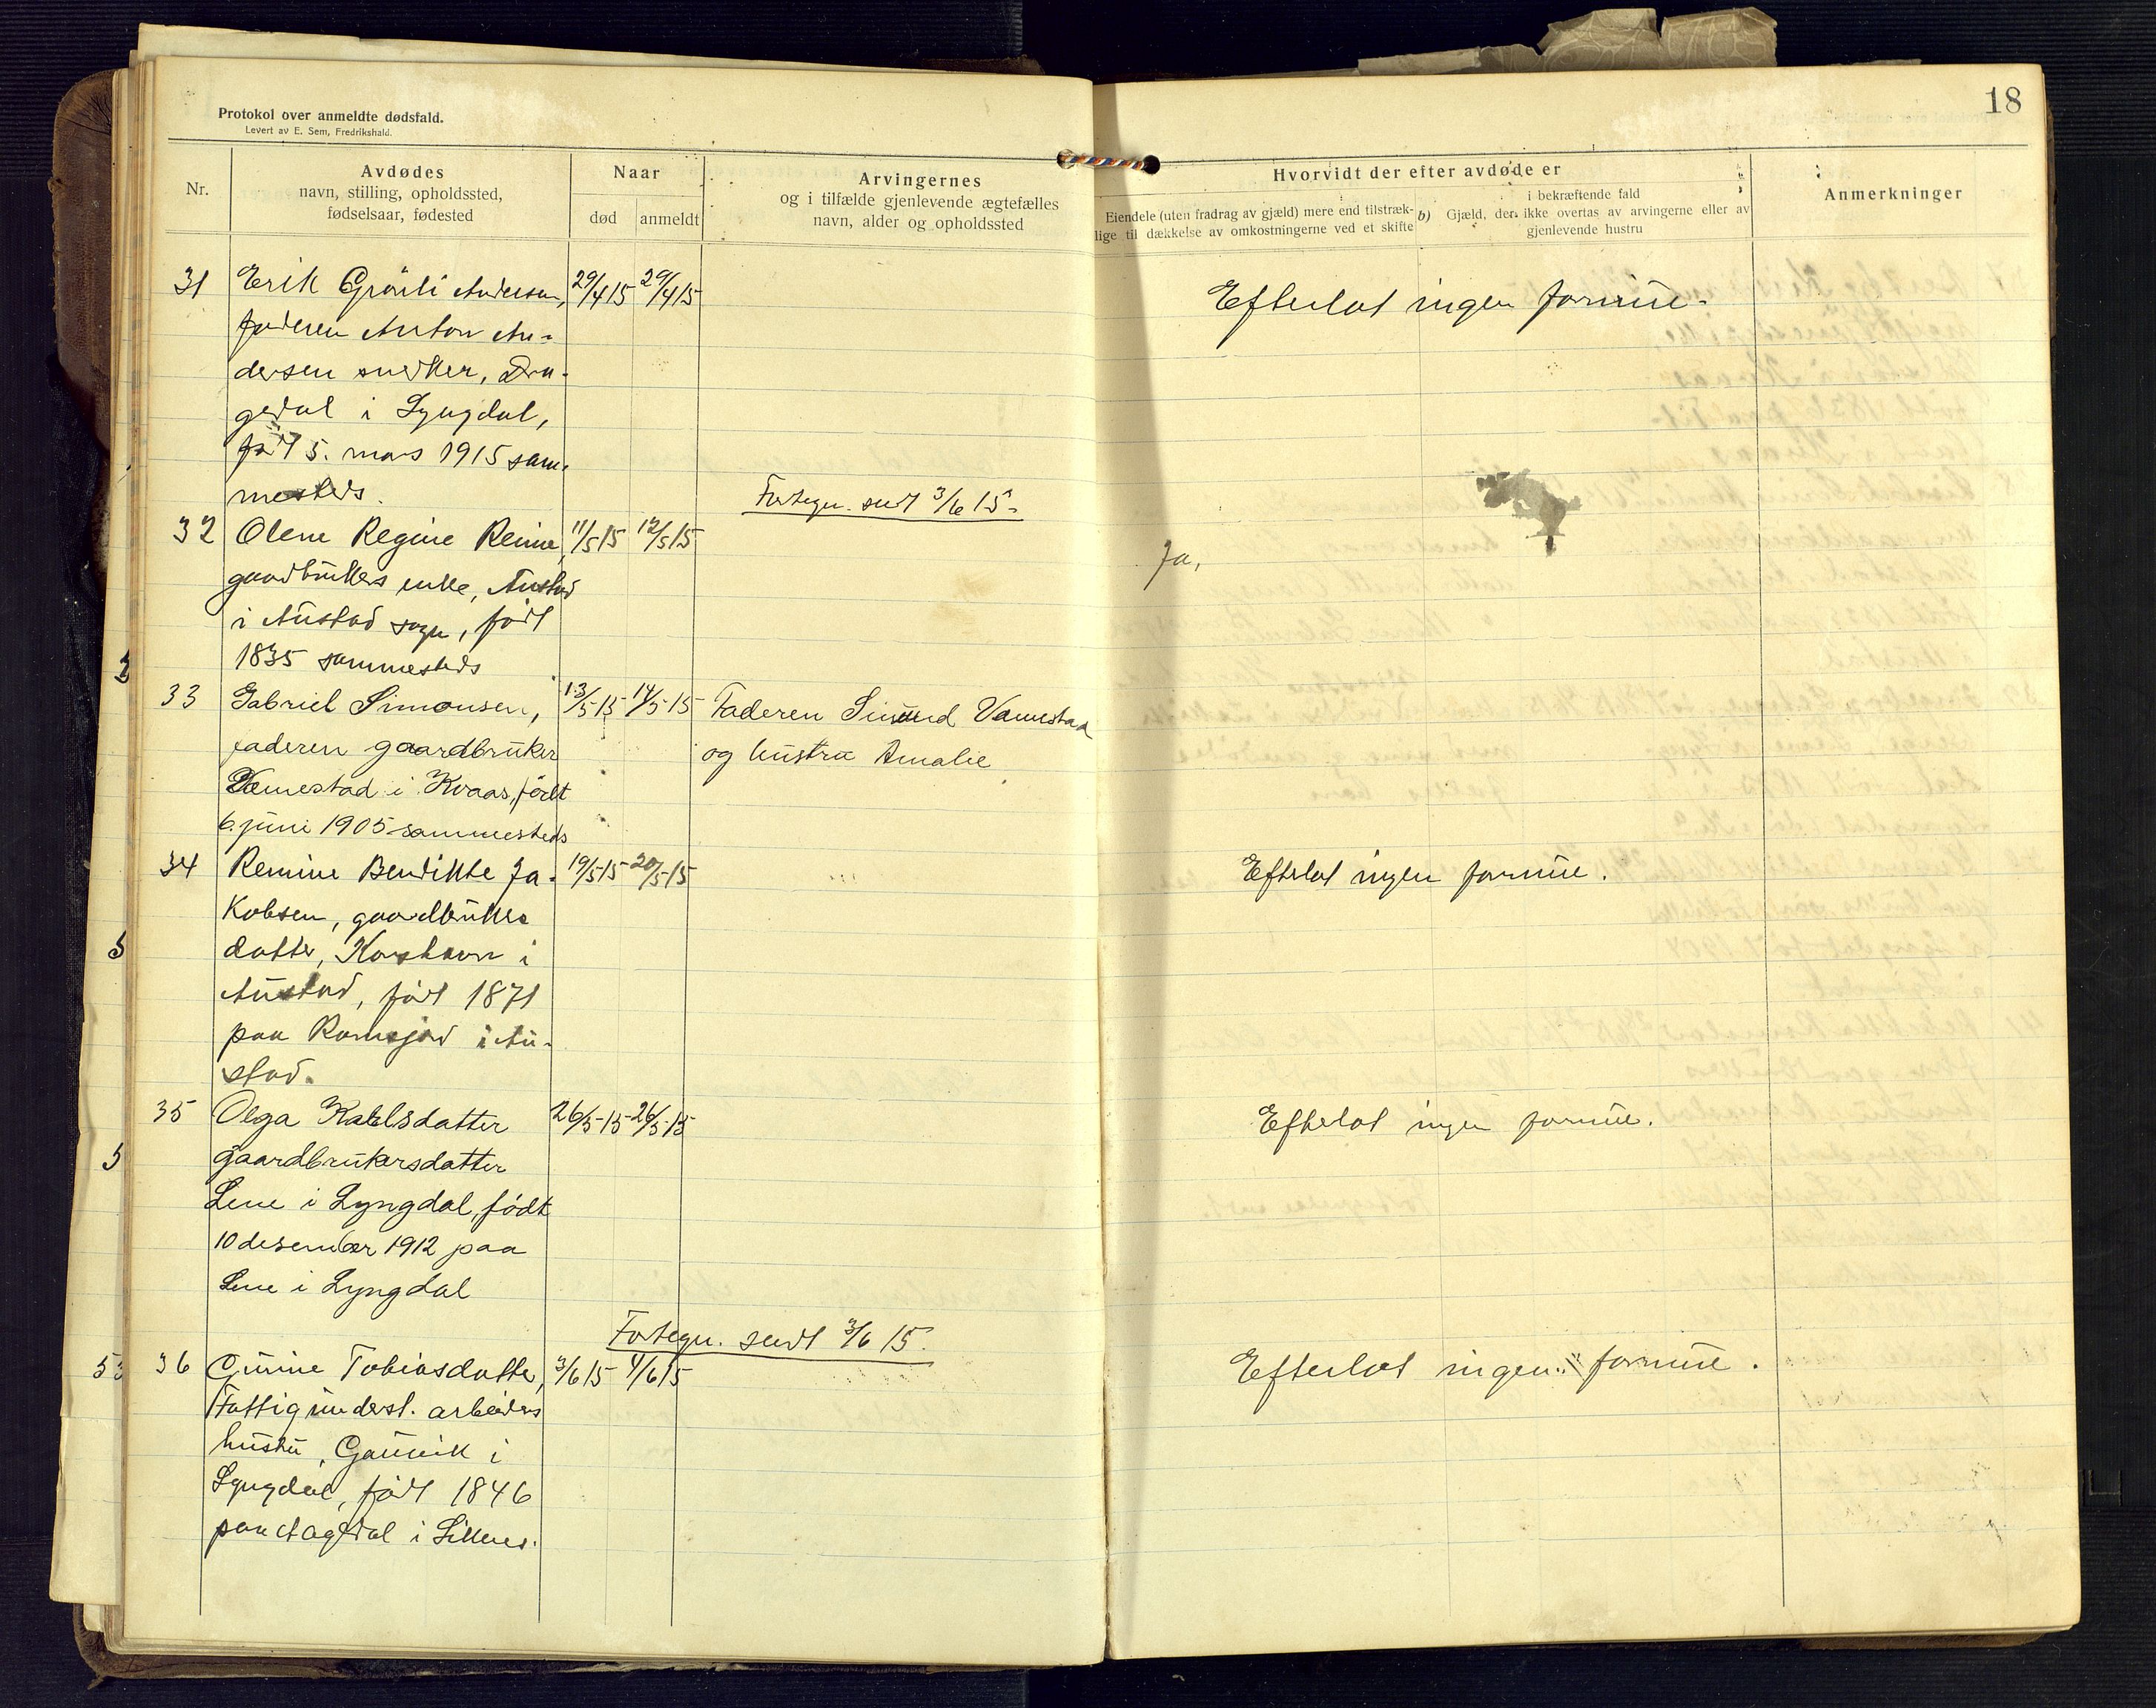 18
Protokol over anmeldte dødsfald.
Levert av E. Sem, Fredrikshald.
Nr.
Avdødes
navn, stilling, opholdssted,
fødselsaar, fødested
Naar
død
anmeldt
Arvingernes
og i tilfælde gjenlevende ægtefælles
navn, alder og opholdssted
Hvorvidt der efter avdøde er
Eiendele (uten fradrag av gjæld) mere end tilstræk-
lige til dækkelse av omkostningerne ved et skifte
i bekræftende fald
b) Gjæld, der ikke overtas av arvingerne eller av
gjenlevende hustru
Anmerkninger
31 Erik Grönli Andersen, 29/4 15 29/4 15 Efterlot ingen formue.
faderen Anton An-
dersen snekker, Dra-
gedal i Lyngdal,
født 5. mars 1915 sam-
mesteds.
Fortegn. sendt 3/6 15.
32 Olene Regine Reime, 11/5 15 12/5 15 Ja,
gaardbrukers enke, Austad
i Austad sogn, født
1835 sammesteds
33 Gabriel Simonsen, 13/5-15 14/5-15 Faderen Simund Vamestad
faderen gaardbruker og hustru Amalie
Vemestad i Kvaas, født
6. juni 1905 sammesteds
34 Remine Bendikte Ja- 19/5 15 20/5 15 Efterlot ingen formue.
kobsen, gaardbrukers
datter, Korshavn i
Austad, født 1871
paa i Au-
stad.
35 Olga Karlsdatter 26/5-15 26/5-15 Efterlot ingen formue.
gaardbrukersdatter
Lene i Lyngdal, født
10 desember 1912 paa
Lene i Lyngdal
Fortegn. sendt 3/6 15.
36 Gurine Tobiasdatter, 3/6 15 4/6 15 Efterlot ingen formue.
Fattigunderst. arbeiders
hustru, i
Lyngdal, født 1846
paa i